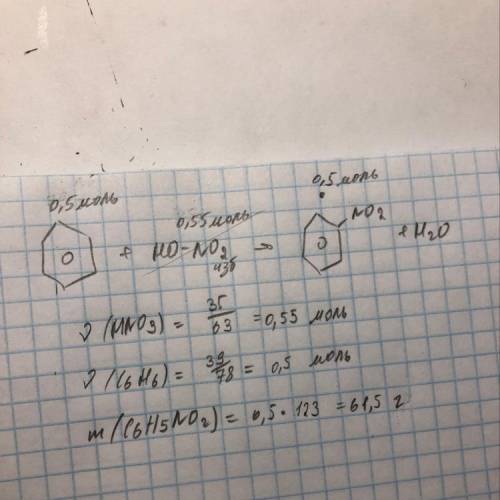 0,5 моль
0,55 моль
0,5 моль
+ HO-NO2 → NO2 + H2O
изб
ν (HNO3) = 35/63 = 0,55 моль
ν (C6H6) = 39/78 = 0,5 моль
m (C6H5NO2) = 0,5 · 123 = 61,5 г